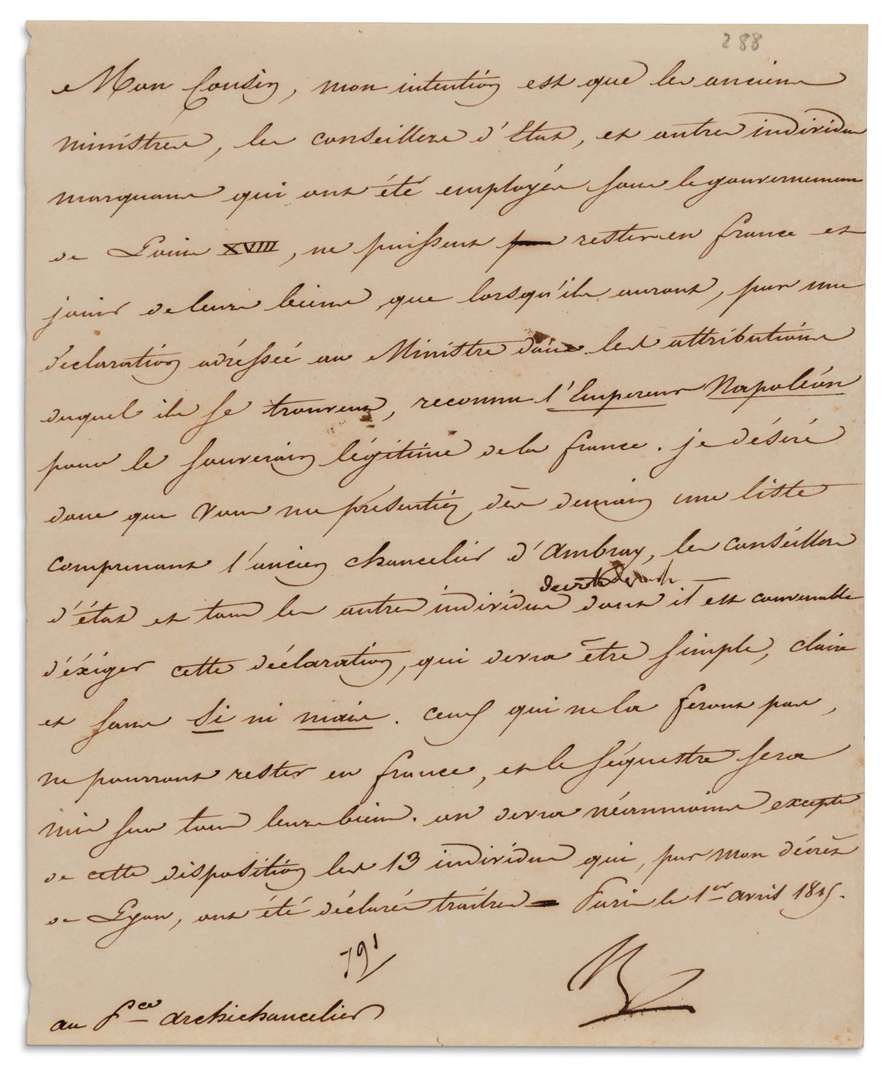 288
Mon Cousin, mon intention est que les anciens
ministres, les conseillers d'Etat, et autres individus
marquans qui ont été employés sous le gouvernement
de Louis XVIII, ne puissent rester en france et
jouir de leurs biens que lorsqu'ils auront, par une
déclaration adressée au Ministre dans les attributions
duquel ils se trouvent, reconnu l'Empereur Napoléon
pour le souverain légitime de la france. je désire
donc que vous me présentiez dès demain une liste
comprenant l'ancien chancelier d'Ambray, les conseillers
d'état et tous les autres individus dont il est convenable
d'éxiger cette déclaration, qui devra être simple, claire
et sans si ni mais. ceux qui ne la feront pas,
ne pourront rester en france, et le séquestre sera
mis sur tous leurs biens. on devra néanmoins excepter
de cette disposition les 13 individus qui, par mon décrèt
de Lyon, ont été déclarés traitres — Paris le 1er avril 1815.
791
au Pce archichancelier